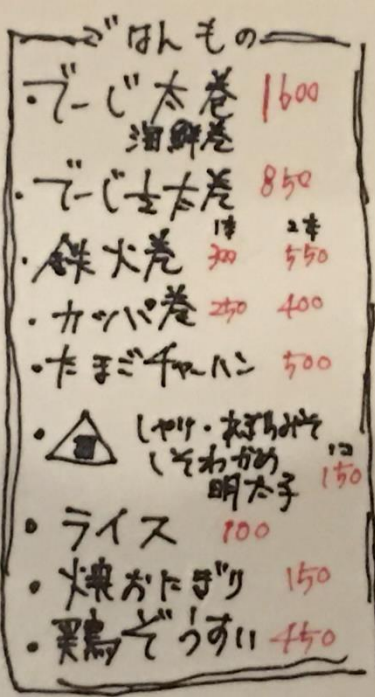 ごはんもの
・でーじ太巻 1600
海鮮巻
・でーじ1/2太巻 850
1本 2本
・鉄火巻 300 550
・カッパ巻 250 400
・たまごチャーハン 500
・しゃけ・ねぎみそ
しそわかめ 1コ
明太子 150
・ライス 100
・焼おにぎり 150
・鶏ぞうすい 450